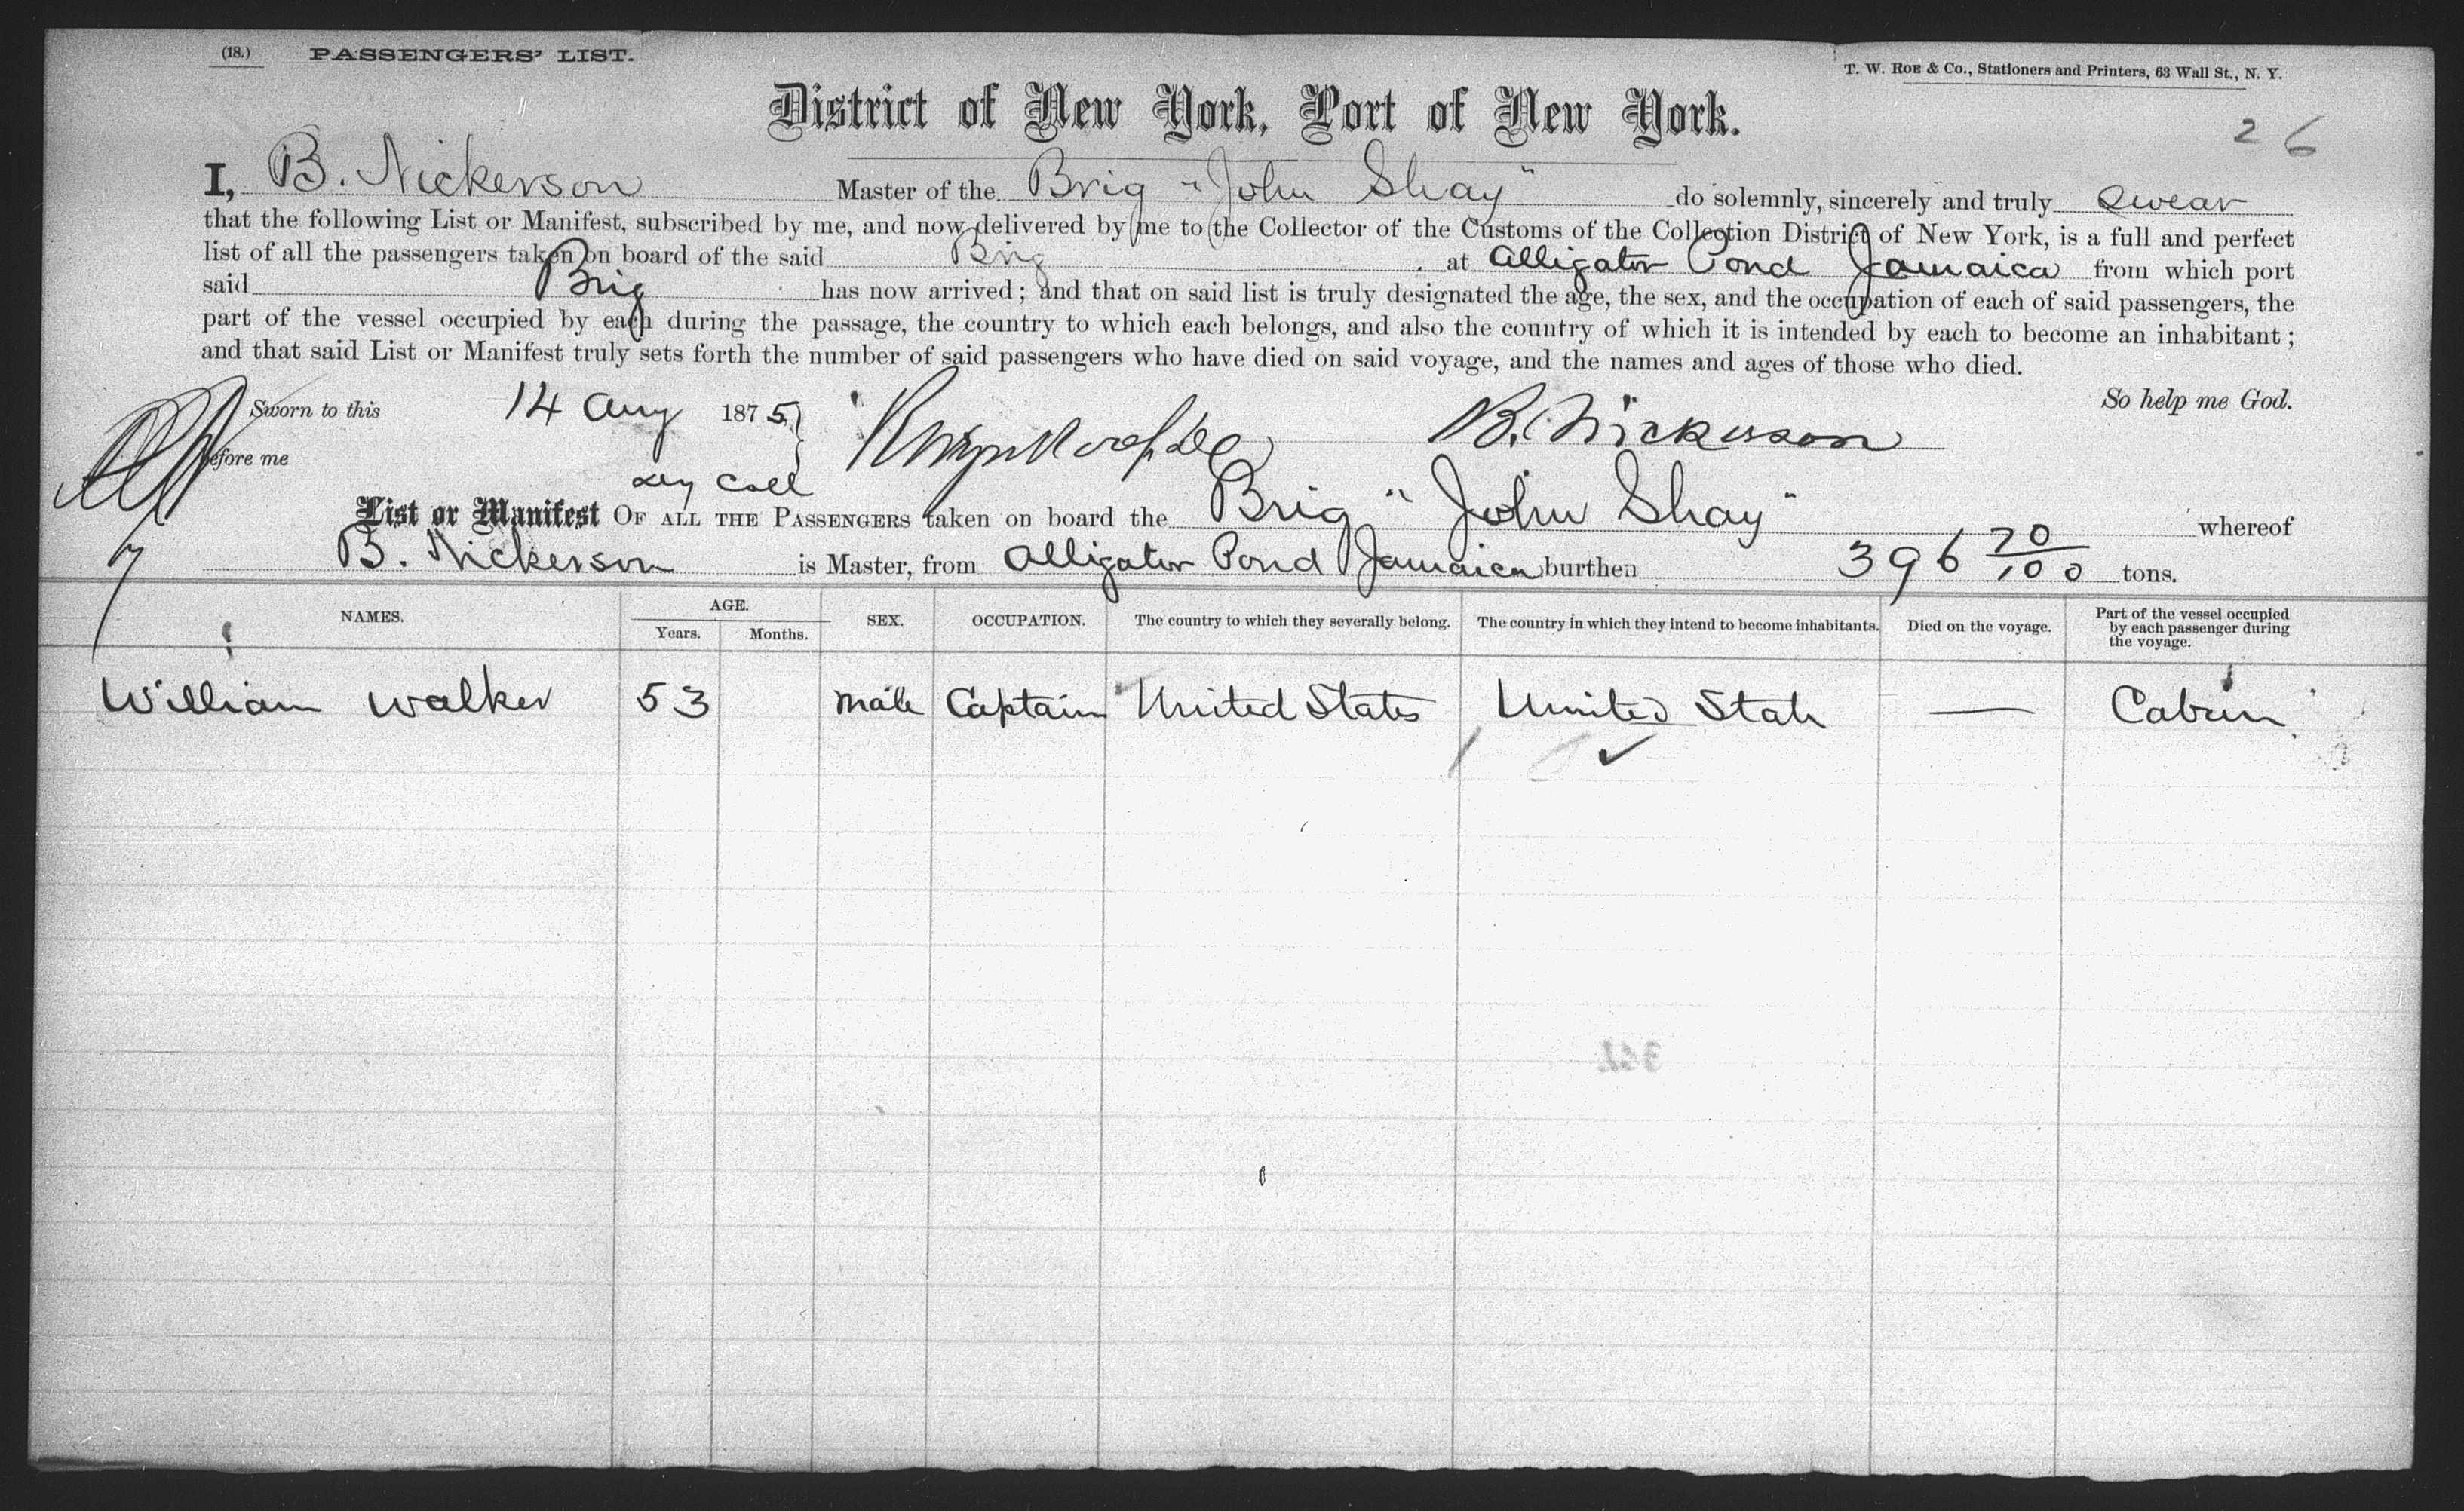 (18.) PASSENGERS' LIST.
T. W. ROE & Co., Stationers and Printers, 63 Wall St., N. Y.
District of New York, Port of New York.
26
I, B. Nickerson Master of the Brig "John Shay" do solemnly, sincerely and truly swear
that the following List or Manifest, subscribed by me, and now delivered by me to the Collector of the Customs of the Collection District of New York, is a full and perfect
list of all the passengers taken on board of the said Brig at Alligator Pond Jamaica from which port
said Brig has now arrived; and that on said list is truly designated the age, the sex, and the occupation of each of said passengers, the
part of the vessel occupied by each during the passage, the country to which each belongs, and also the country of which it is intended by each to become an inhabitant;
and that said List or Manifest truly sets forth the number of said passengers who have died on said voyage, and the names and ages of those who died.
Sworn to this 14 Aug 1875 B. Nickerson So help me God.
before me
Dey Coll
List or Manifest OF ALL THE PASSENGERS taken on board the Brig "John Shay" whereof
B. Nickerson is Master, from Alligator Pond Jamaica burthen 396 70/100 tons.
NAMES. AGE. Years. Months. SEX. OCCUPATION. The country to which they severally belong. The country in which they intend to become inhabitants. Died on the voyage. Part of the vessel occupied by each passenger during the voyage.
William Walker 53 Male Captain United States United State — Cabin